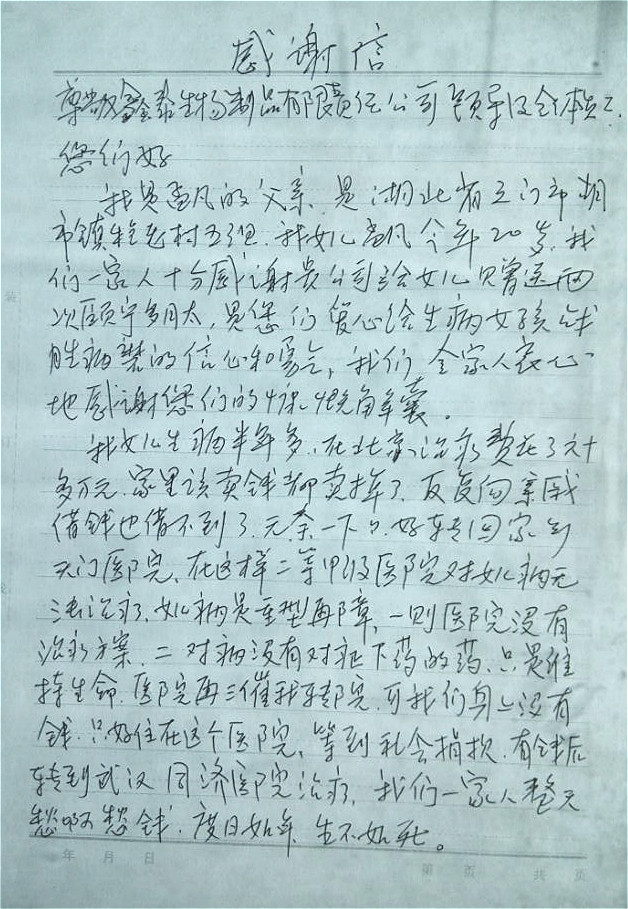 感谢信
尊敬鑫泰生物制品有限责任公司领导及全体员工.
您们好
我是孟凡的父亲.是湖北省天门市胡
市镇 村五组.我女儿孟凡今年20岁.我
们一家人十分感谢贵公司给女儿贝曾送两
次 太,是您们爱心给生病女孩战
胜病禁的信心和勇气,我们全家人衷心
地感谢您们的慷慨角军囊。
我女儿生病半年多.在北京治疗费花了六十
多万元.家里该卖钱都卖掉了.反复向亲戚
借钱也借不到了.无奈一下.好转回家到
天门医院.在这样二等甲级医院对女儿病无
法治疗.女儿病是重型再障,一则医院没有
治疗方案.二对病没有对症下药的药.只是维
持生命.医院再三催我转院.可我们身上没有
钱.只好住在这个医院,等到社会捐款.有钱后
转到武汉同济医院治疗,我们一家人整天
愁啊愁钱.度日如年 生不如死。
年 月 日 第 页 共 页